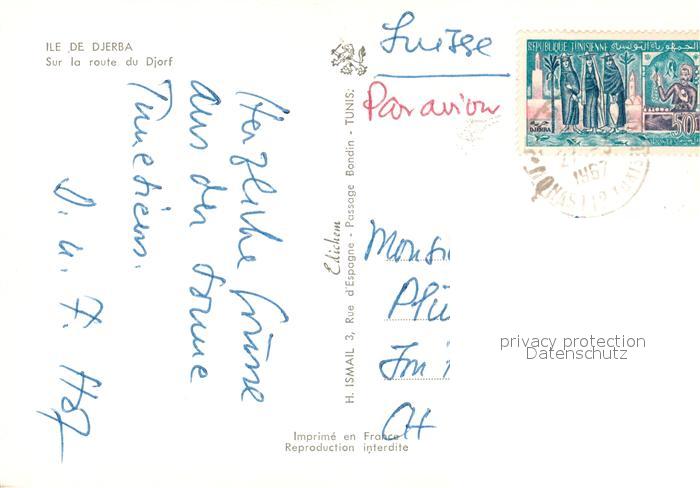 ILE DE DJERBA
Sur la route du Djorf
Herzliche Grüsse
aus der Sonne
Tunesiens.
H. ISMAIL 3, Rue d'Espagne - Passage Bondin - TUNIS.
Edichem
Imprimé en France
Reproduction interdite
Suisse
Par avion
REPUBLIQUE TUNISIENNE الجمهورية التونسية
DJERBA
50
1967
Monsi
CH
privacy protection
Datenschutz